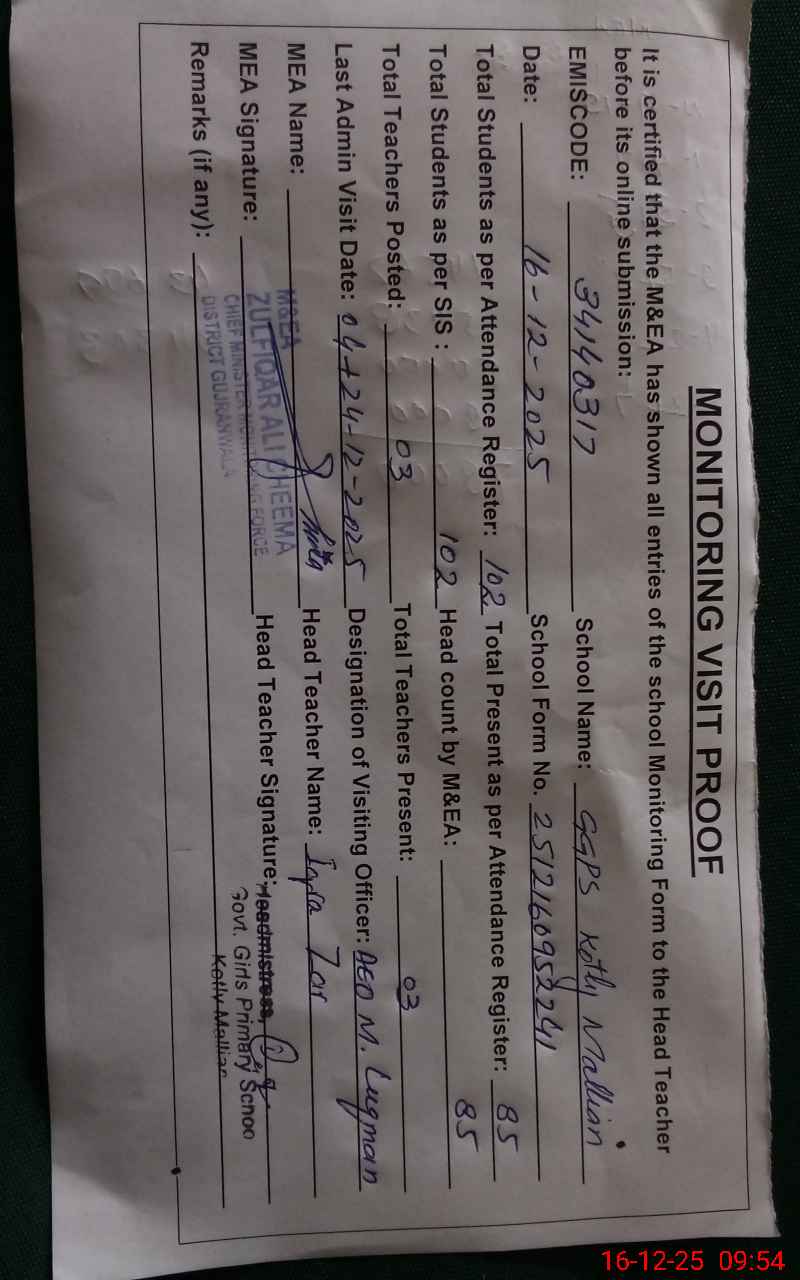 MONITORING VISIT PROOF
It is certified that the M&EA has shown all entries of the school Monitoring Form to the Head Teacher
before its online submission:
EMISCODE: 34140317 School Name: GGPS Kotly Mallian
Date: 16-12-2025 School Form No. 2512160952241
Total Students as per Attendance Register: 102 Total Present as per Attendance Register: 85
Total Students as per SIS : 102 Head count by M&EA: 85
Total Teachers Posted: 03 Total Teachers Present: 03
Last Admin Visit Date: 04+24-12-2025 Designation of Visiting Officer: AEO M. Luqman
MEA Name: Head Teacher Name: Iqra Zar
MEA Signature: Head Teacher Signature:
Remarks (if any):
M&EA
ZULFIQAR ALI CHEEMA
CHIEF MINISTER MONITORING FORCE
DISTRICT GUJRANWALA
Headmistress,
Govt. Girls Primary Schoo
Kotly Mallian
16-12-25 09:54